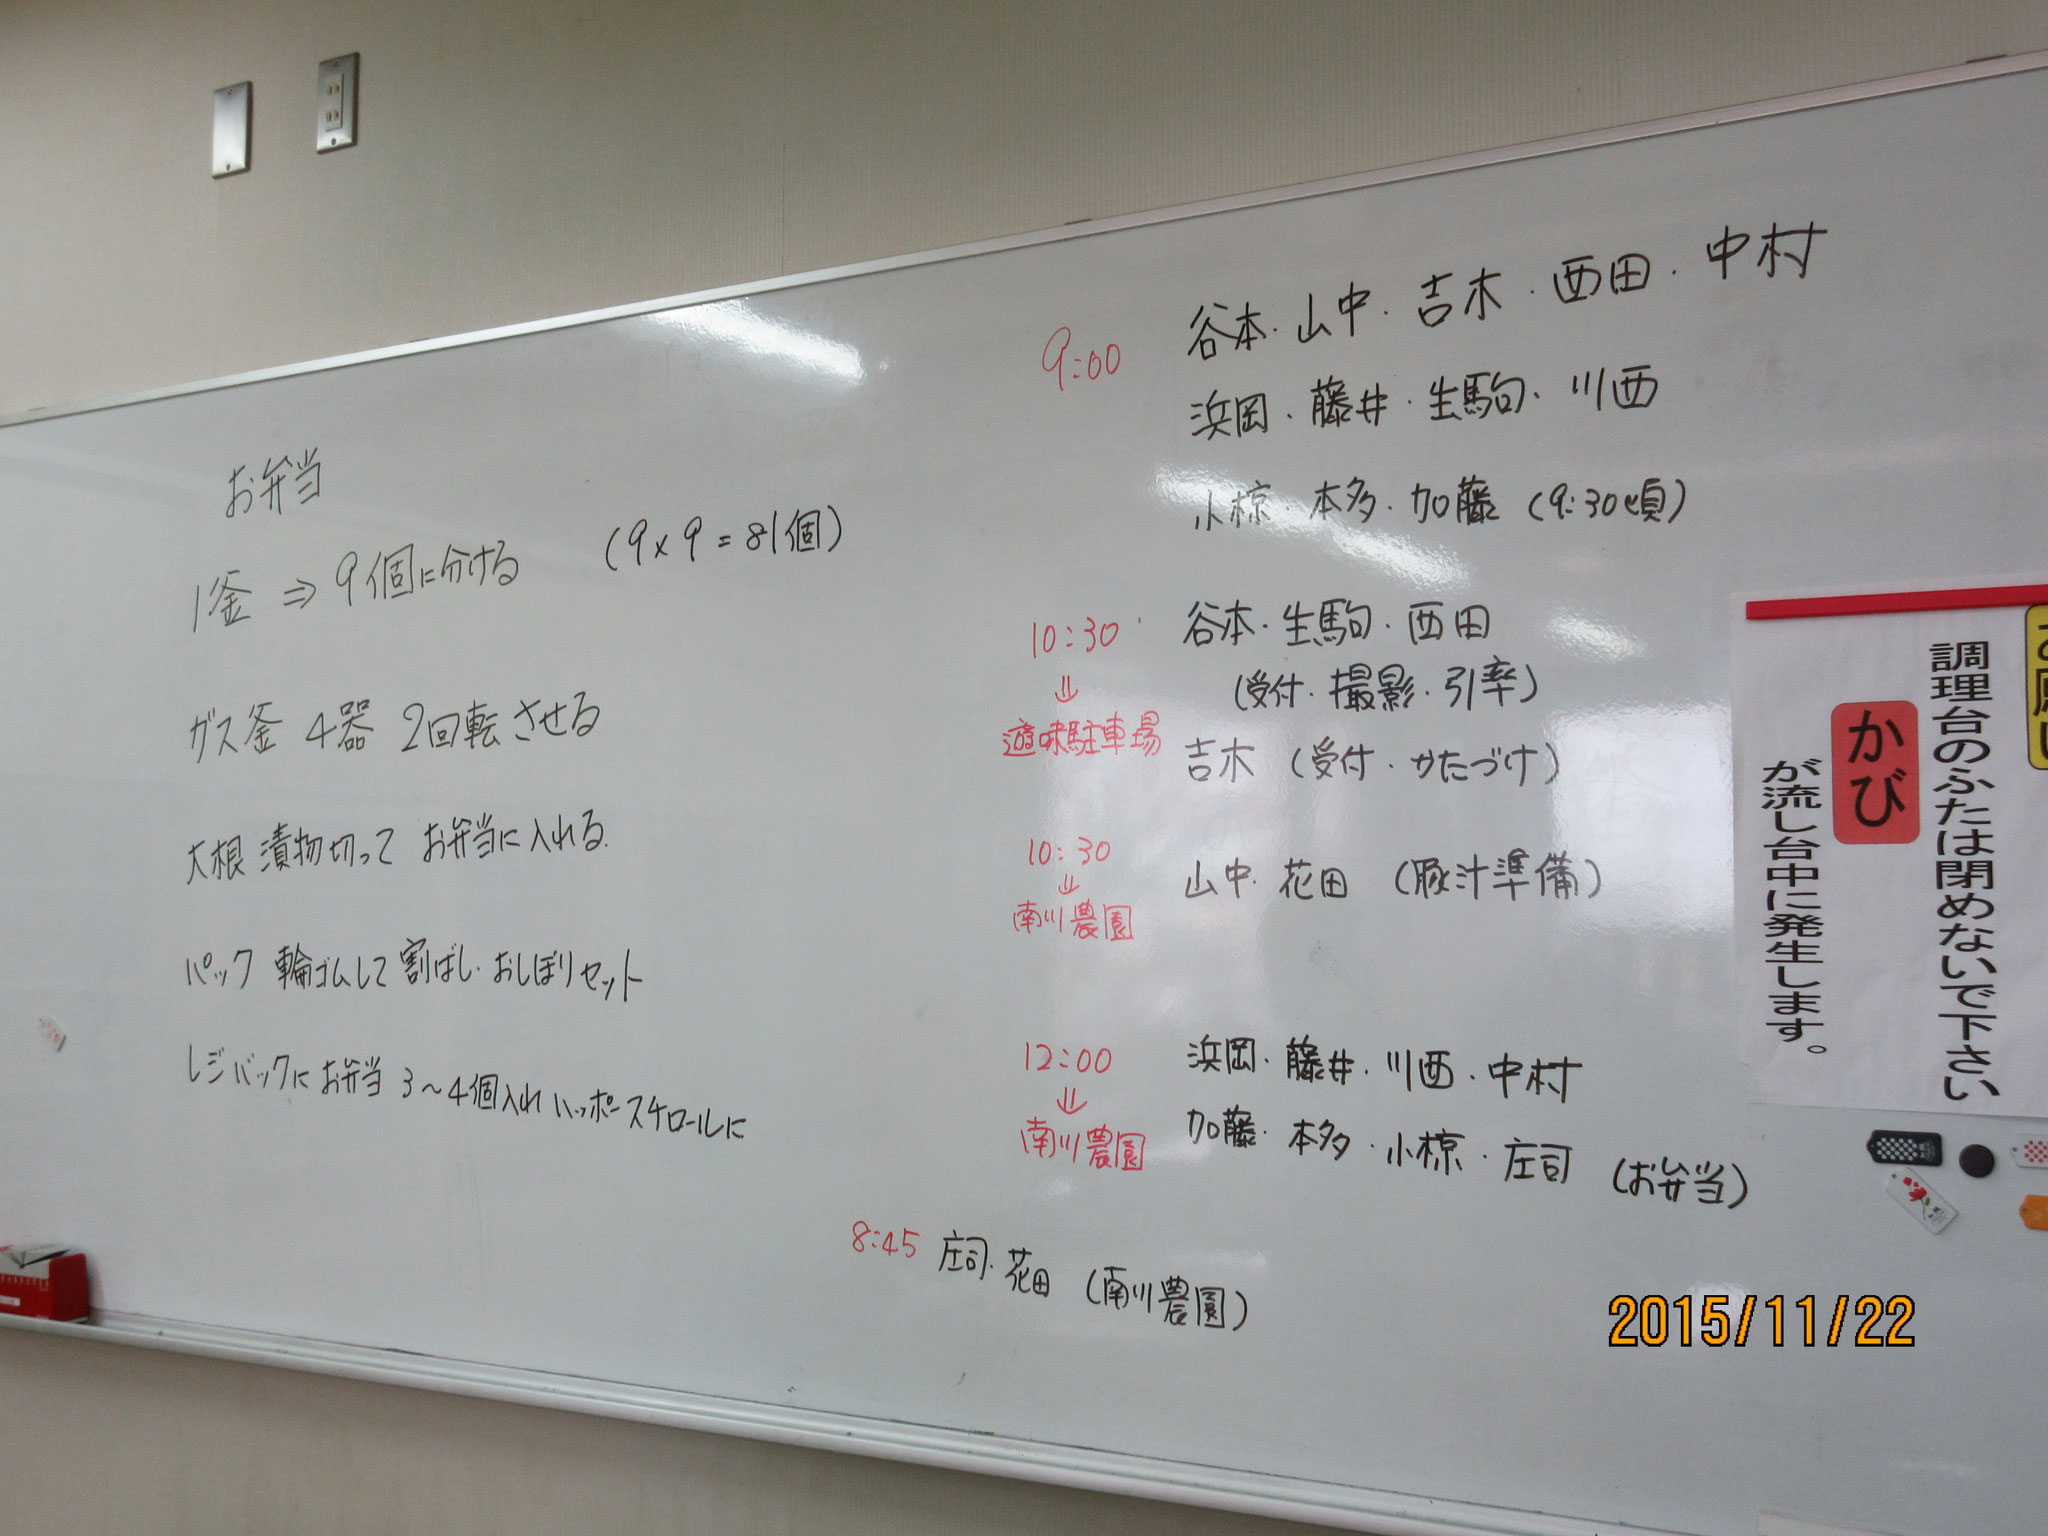 お弁当
1釜 ⇒ 9個に分ける (9×9=81個)
ガス釜 4器 2回転させる
大根 漬物切って お弁当に入れる.
パック 輪ゴムして 割ばし.おしぼりセット
レジバックに お弁当 3～4個入れ ハッポースチロールに
9:00 谷本・山中・吉木・西田・中村
浜岡・藤井・生駒・川西
小椋・本多・加藤 (9:30頃)
10:30 谷本・生駒・西田
⇓ (受付・撮影・引率)
遊味駐車場 吉木 (受付・かたづけ)
10:30 山中・花田 (豚汁準備)
⇓
南川農園
12:00 浜岡・藤井・川西・中村
⇓
南川農園 加藤・本多・小椋・庄司 (お弁当)
8:45 庄司・花田 (南川農園)
調理台のふたは閉めないで下さい
かび
が流し台中に発生します。
2015/11/22